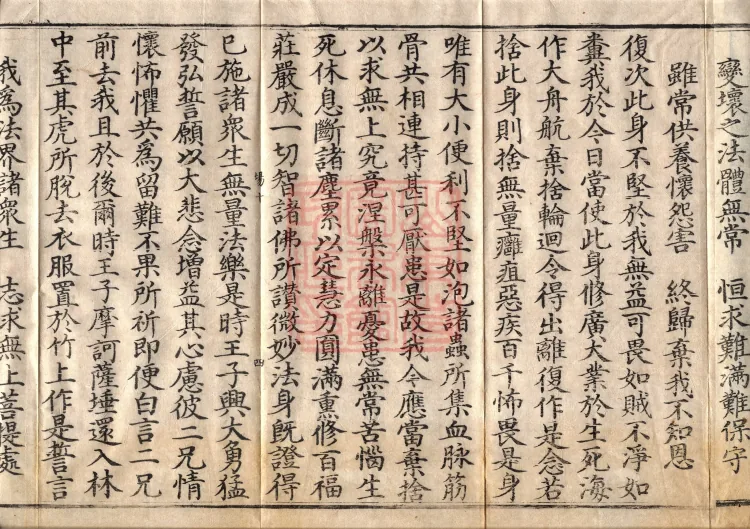 變壞之法體無常　恒求難滿難保守
雖常供養懷怨害　終歸棄我不知恩
復次此身不堅於我無益可畏如賊不淨如
糞我於今日當使此身修廣大業於生死海
作大舟航棄捨輪迴令得出離復作是念若
捨此身則捨無量癰疽惡疾百千怖畏是身
唯有大小便利不堅如泡諸蟲所集血脉筋
骨共相連持甚可厭患是故我今應當棄捨
以求無上究竟涅槃永離憂患無常苦惱生
死休息斷諸塵累以定慧力圓滿熏修百福
莊嚴成一切智諸佛所讃微妙法身旣證得
場十　四
已施諸衆生無量法樂是時王子興大勇猛
發弘誓願以大悲念增益其心慮彼二兄情
懷怖懼共爲留難不果所祈即便白言二兄
前去我且於後爾時王子摩訶薩埵還入林
中至其虎所脫去衣服置於竹上作是誓言
我爲法界諸衆生　志求無上菩提處